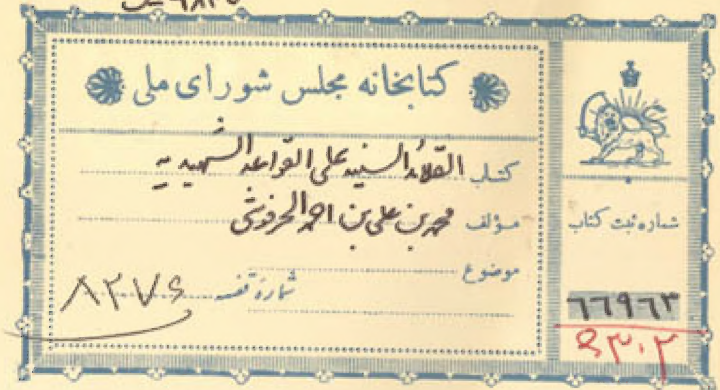 کتابخانه مجلس شورای ملی
کتاب القلائد السنیه علی القواعد الشهیدیه
مؤلف محمد بن علی بن احمد الحرفوشی
موضوع
شماره قفسه ۸۲۷۶
شماره ثبت کتاب
۶۶۹۶۳